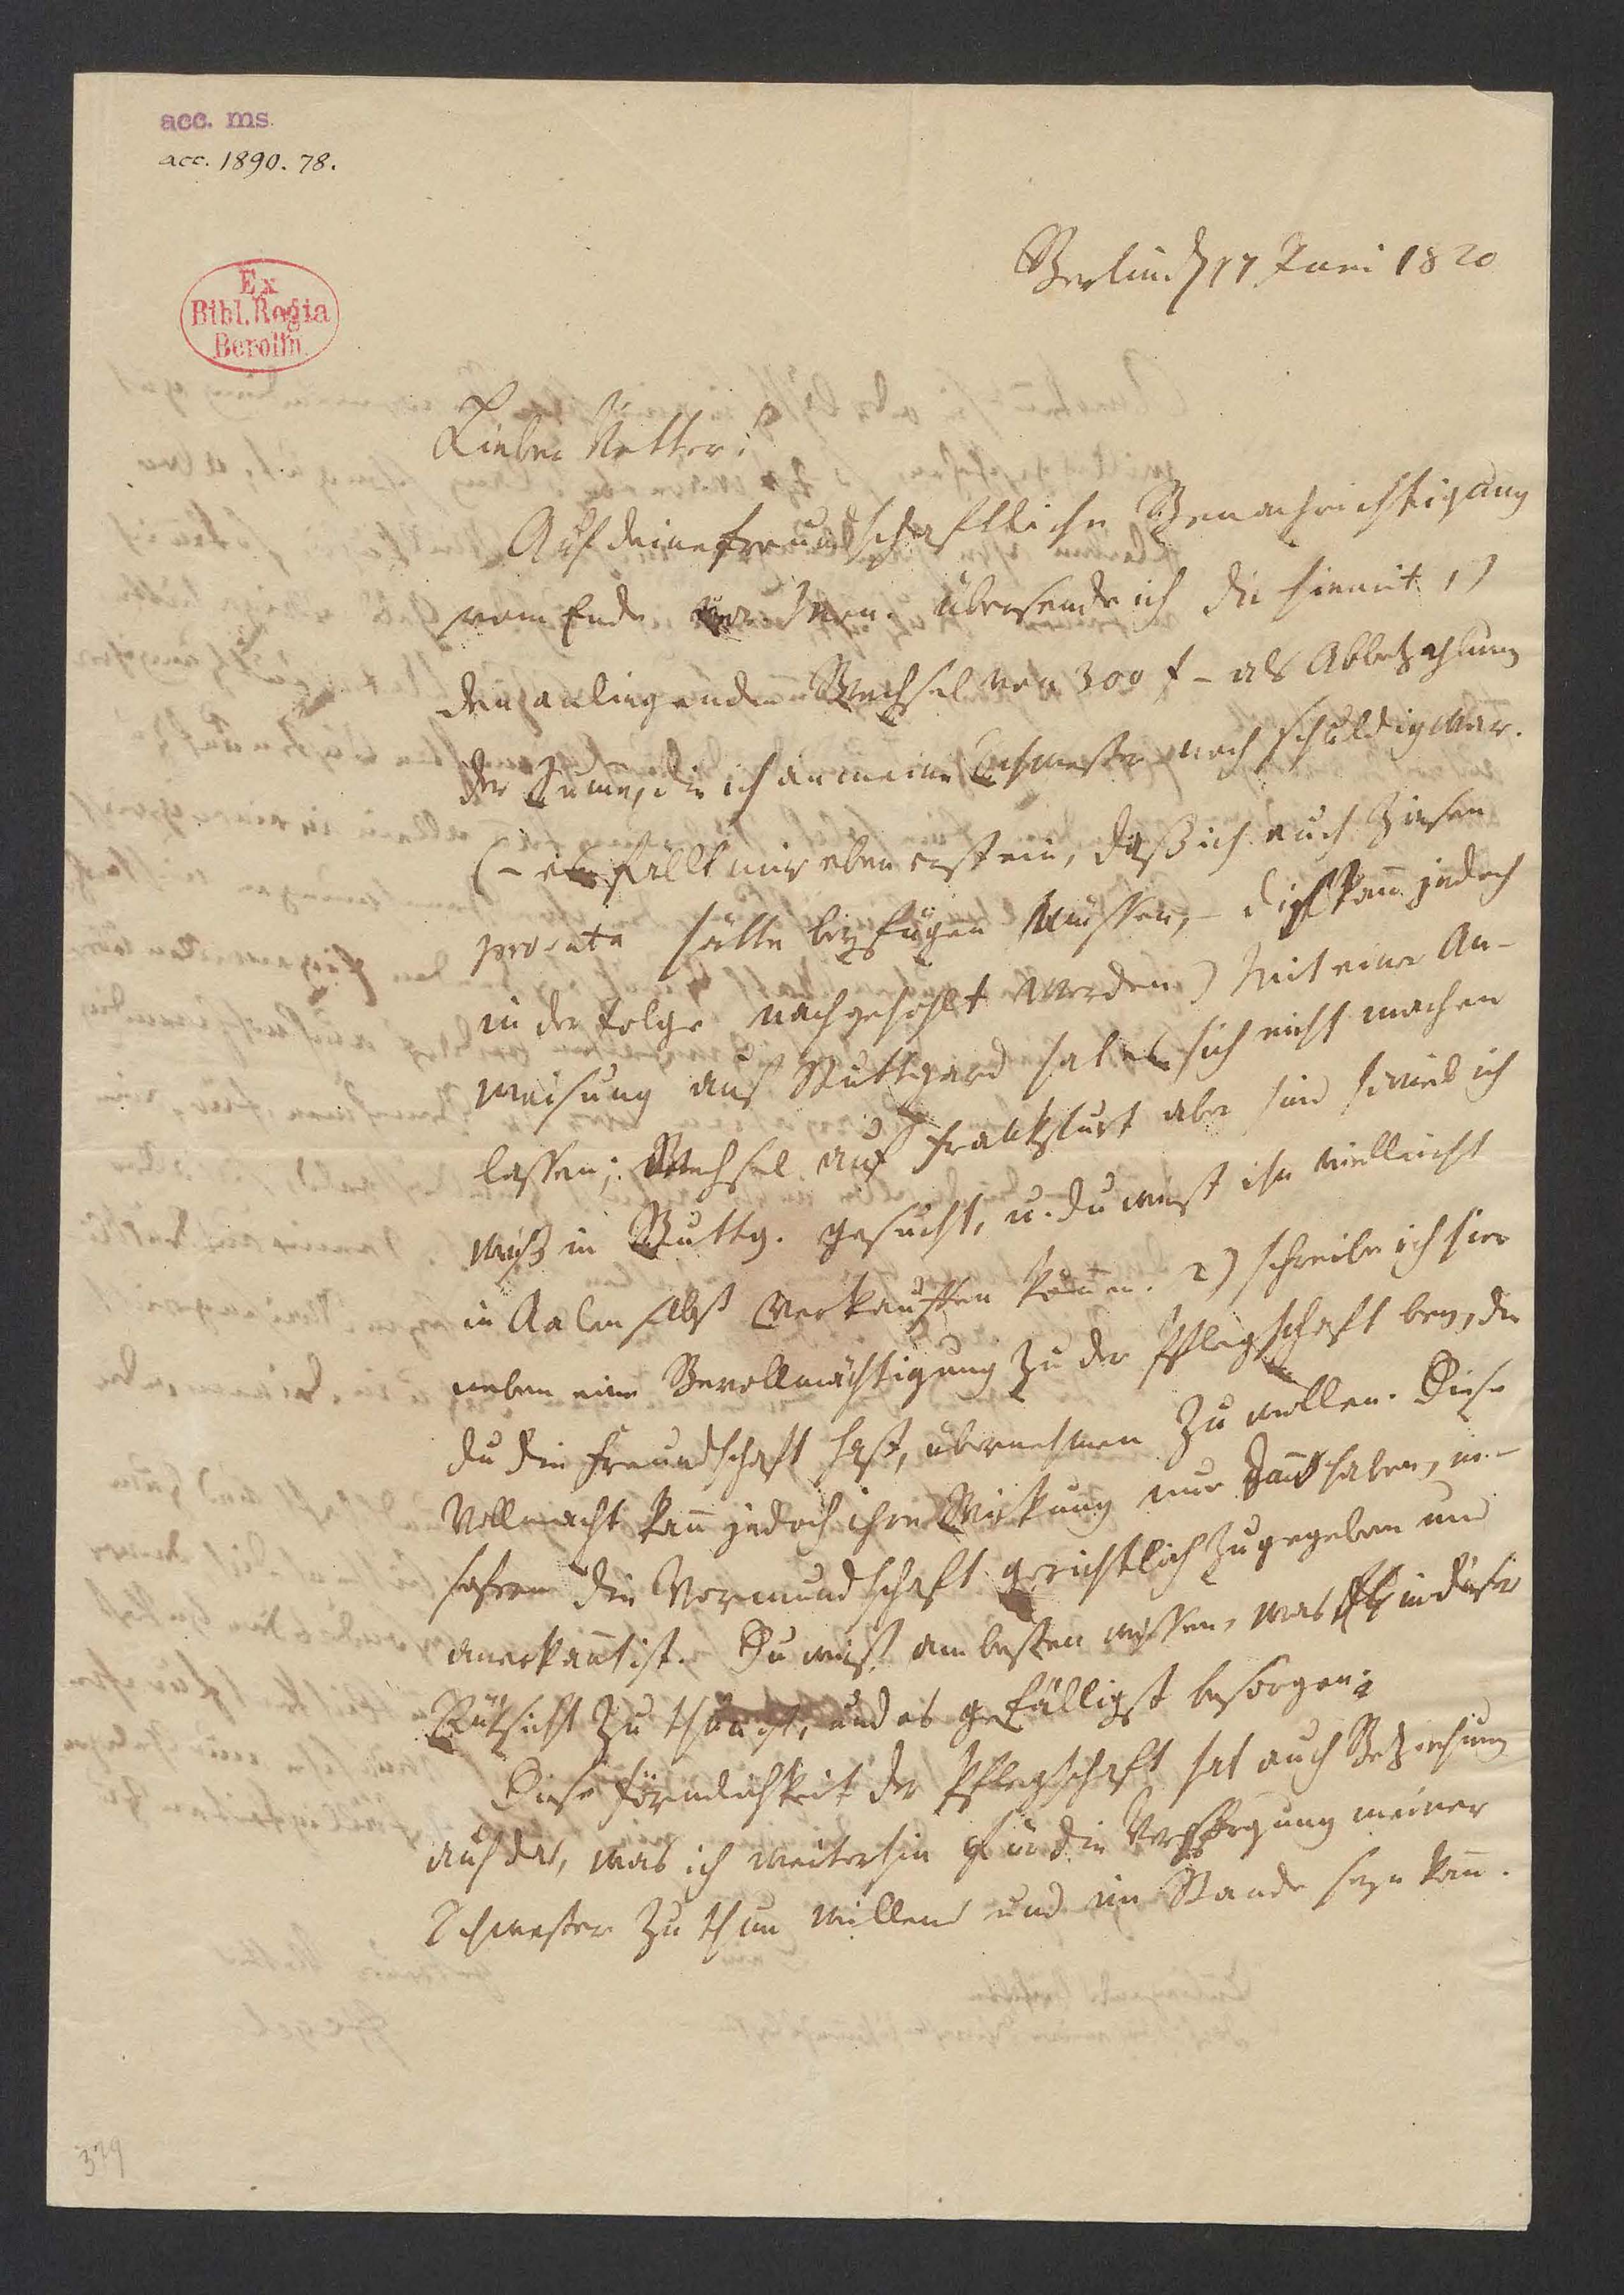 acc. ms.
acc. 1890. 78.
Ex
Bibl. Regia
Berolin.
Berlin d 17 Juni 1820
Lieber Vetter!
Auf deine freundschaftliche Benachrichtigung
vom Ende vor. Mon. übersende ich dir hiemit 1)
den anliegenden Wechsel von 300 f – als Abbezahlung
der Sume, die ich an meine Schwester noch schuldig war.
(– es fällt mir eben erst ein, daß ich auch Zinsen
pro rata hätte beyfügen müssen, – diß kann jedoch
in der Folge nachgehohlt werden) Mit einer An-
weisung auf Stuttgard hat es sich nicht machen
lassen; Wechsel auf Frankfurt aber sind soviel ich
weiß in Stuttg. gesucht, u. du wirst ihn vielleicht
in Aalen selbst verkauffen können. 2) schreibe ich hier
neben eine Bevollmächtigung zu der Pflegschaft bey, die
du die Freundschaft hast, übernehmen zu wollen. Diese
Vollmacht kann jedoch ihre Wirkung nur dann haben, in-
sofern die Vormundschaft gerichtlich zugegeben und
anerkannt ist. Du wirst am besten wissen, was in dieser
Rüksicht zu thun ist, und es gefälligst besorgen;
Diese Förmlichkeit der Pflegschaft hat auch Beziehung
auf das, was ich weiterhin für die Verpflegung meiner
Schwester zu thun willens und im Stande seyn kann.
379